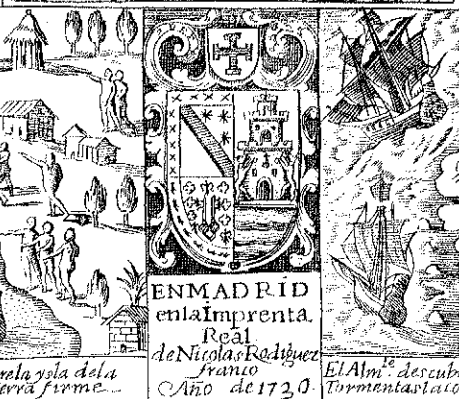 EN MADRID
en la Imprenta
Real
de Nicolas Rodiguez
franco
Año de 1730.
rela ysla dela
erra firme
El Almte. descub
Tormentas la co